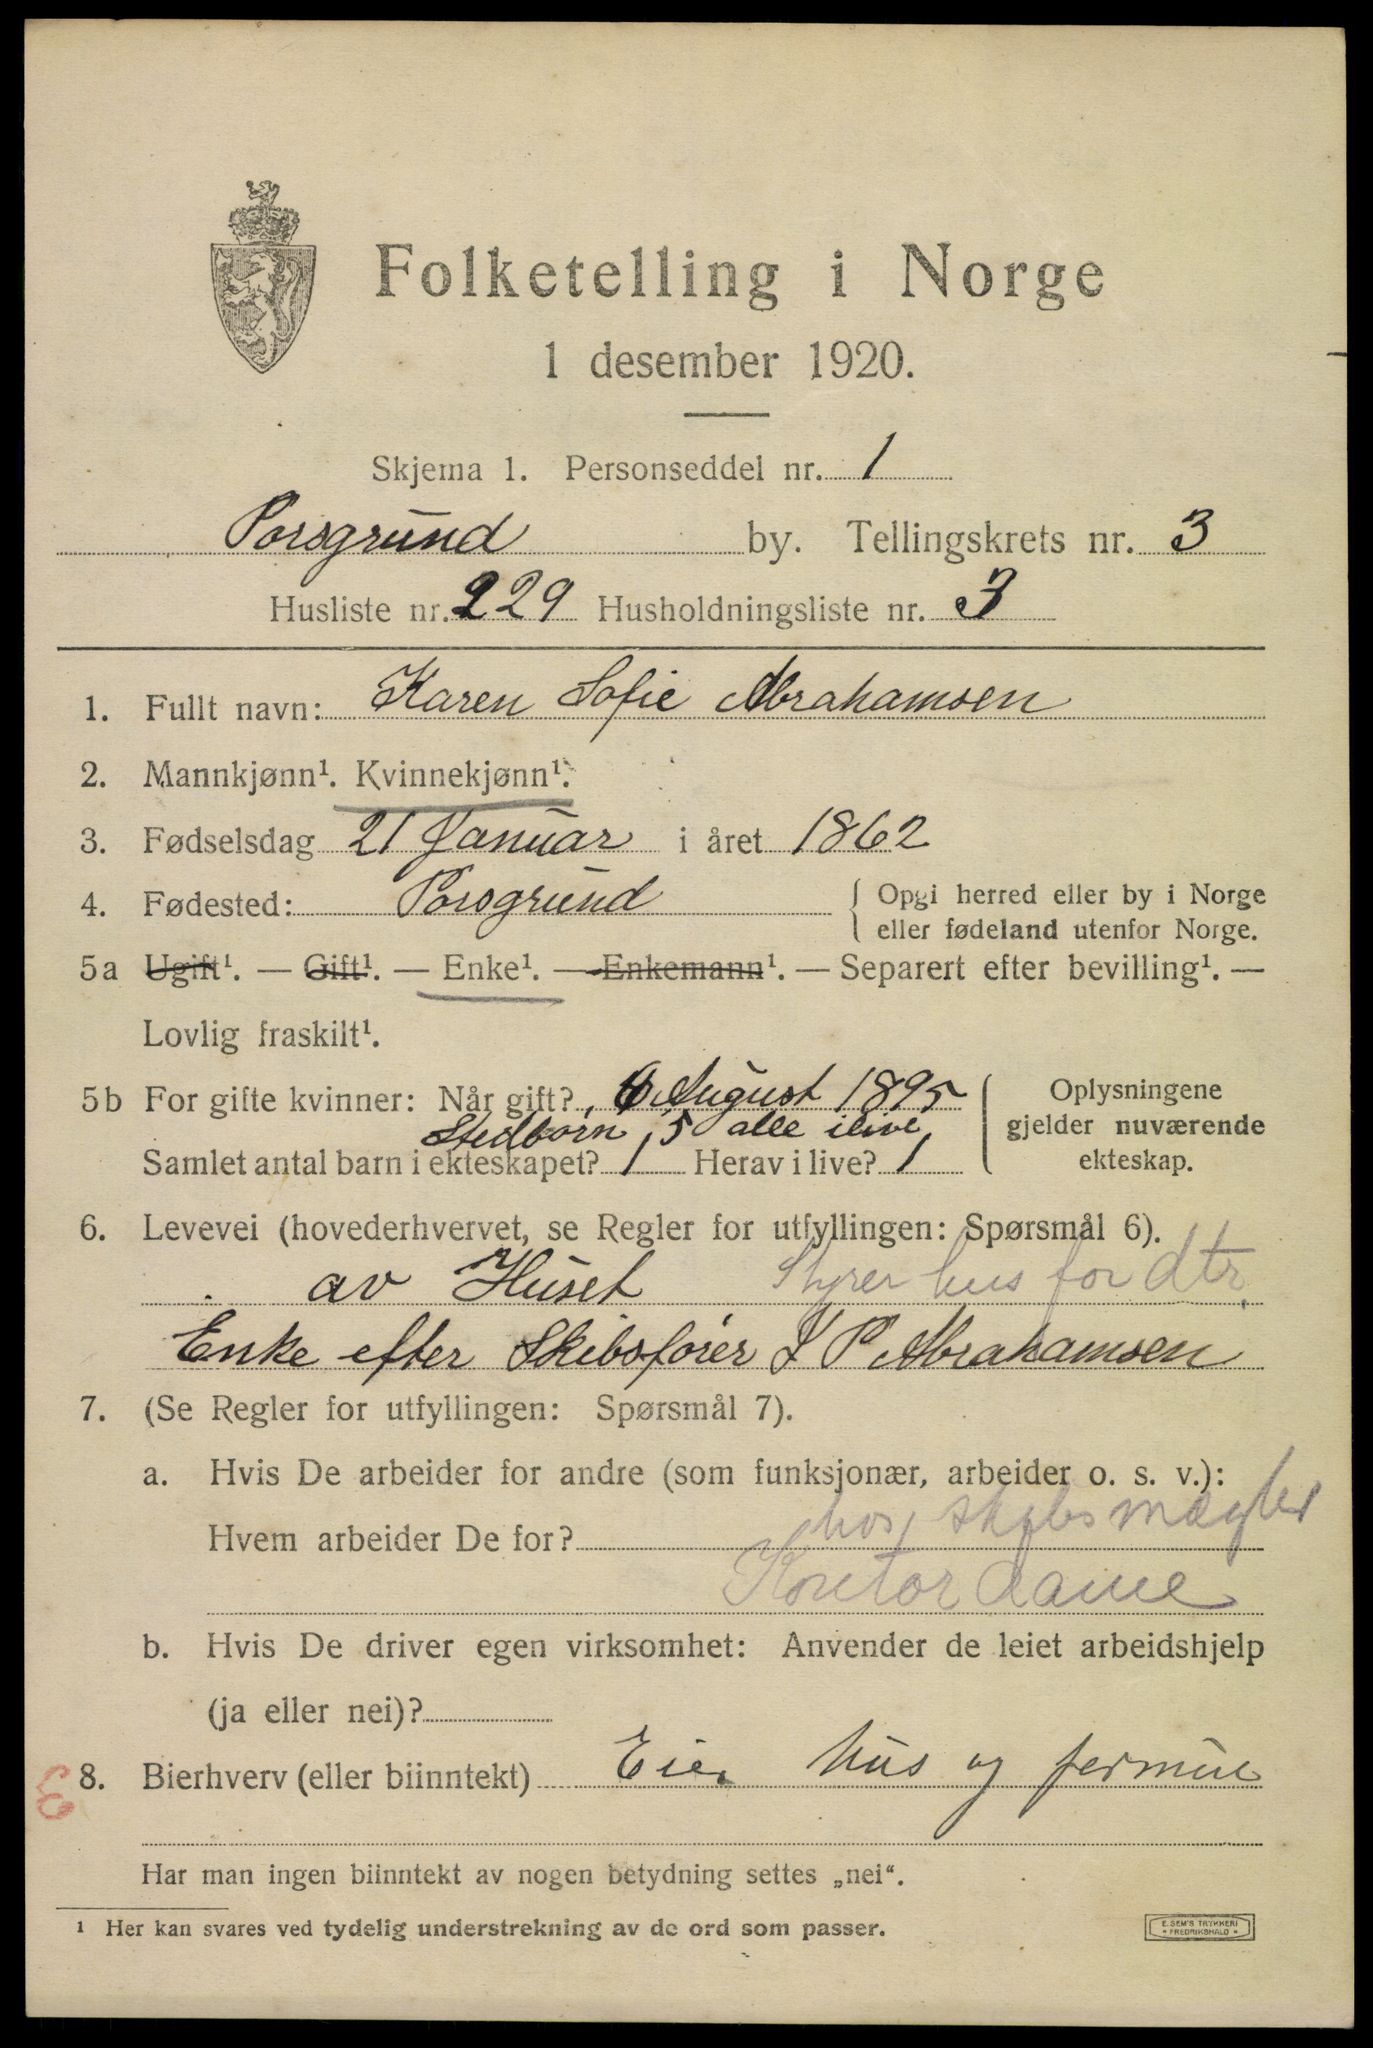 Folketelling i Norge
1 desember 1920.
Skjema 1. Personseddel nr. 1
Porsgrund by. Tellingskrets nr. 3
Husliste nr. 229 Husholdningsliste nr. 3
1. Fullt navn: Karen Sofie Abrahamsen
2. Mannkjønn¹. Kvinnekjønn¹.
3. Fødselsdag 21 Januar i året 1862
4. Fødested: Porsgrund { Opgi herred eller by i Norge
eller fødeland utenfor Norge.
5a Ugift¹. — Gift¹. — Enke¹. — Enkemann¹. — Separert efter bevilling¹. —
Lovlig fraskilt¹.
5b For gifte kvinner: Når gift? August 1895 { Oplysningene
Stedborn 5 alle ilive gjelder nuværende
Samlet antal barn i ekteskapet? 1 Herav i live? 1 ekteskap.
6. Levevei (hovederhvervet, se Regler for utfyllingen: Spørsmål 6).
av Huset Styrer hus for dtr.
Enke efter Skibsfører P Abrahamsen
7. (Se Regler for utfyllingen: Spørsmål 7).
a. Hvis De arbeider for andre (som funksjonær, arbeider o. s. v.):
hos skibsmægler
Hvem arbeider De for?
Kontordame
b. Hvis De driver egen virksomhet: Anvender de leiet arbeidshjelp
(ja eller nei)?
3 8. Bierhverv (eller biinntekt) Eier hus og formue
Har man ingen biinntekt av nogen betydning settes „nei“.
¹ Her kan svares ved tydelig understrekning av de ord som passer.
E. SEM'S TRYKKERI
FREDRIKSHALD